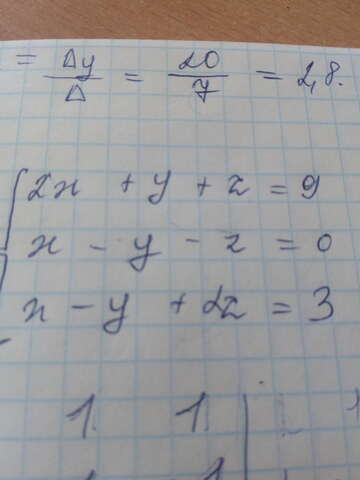 = Δy/Δ = 20/7 = 2,8.
2x + y + z = 9
x - y - z = 0
x - y + 2z = 3
1 1